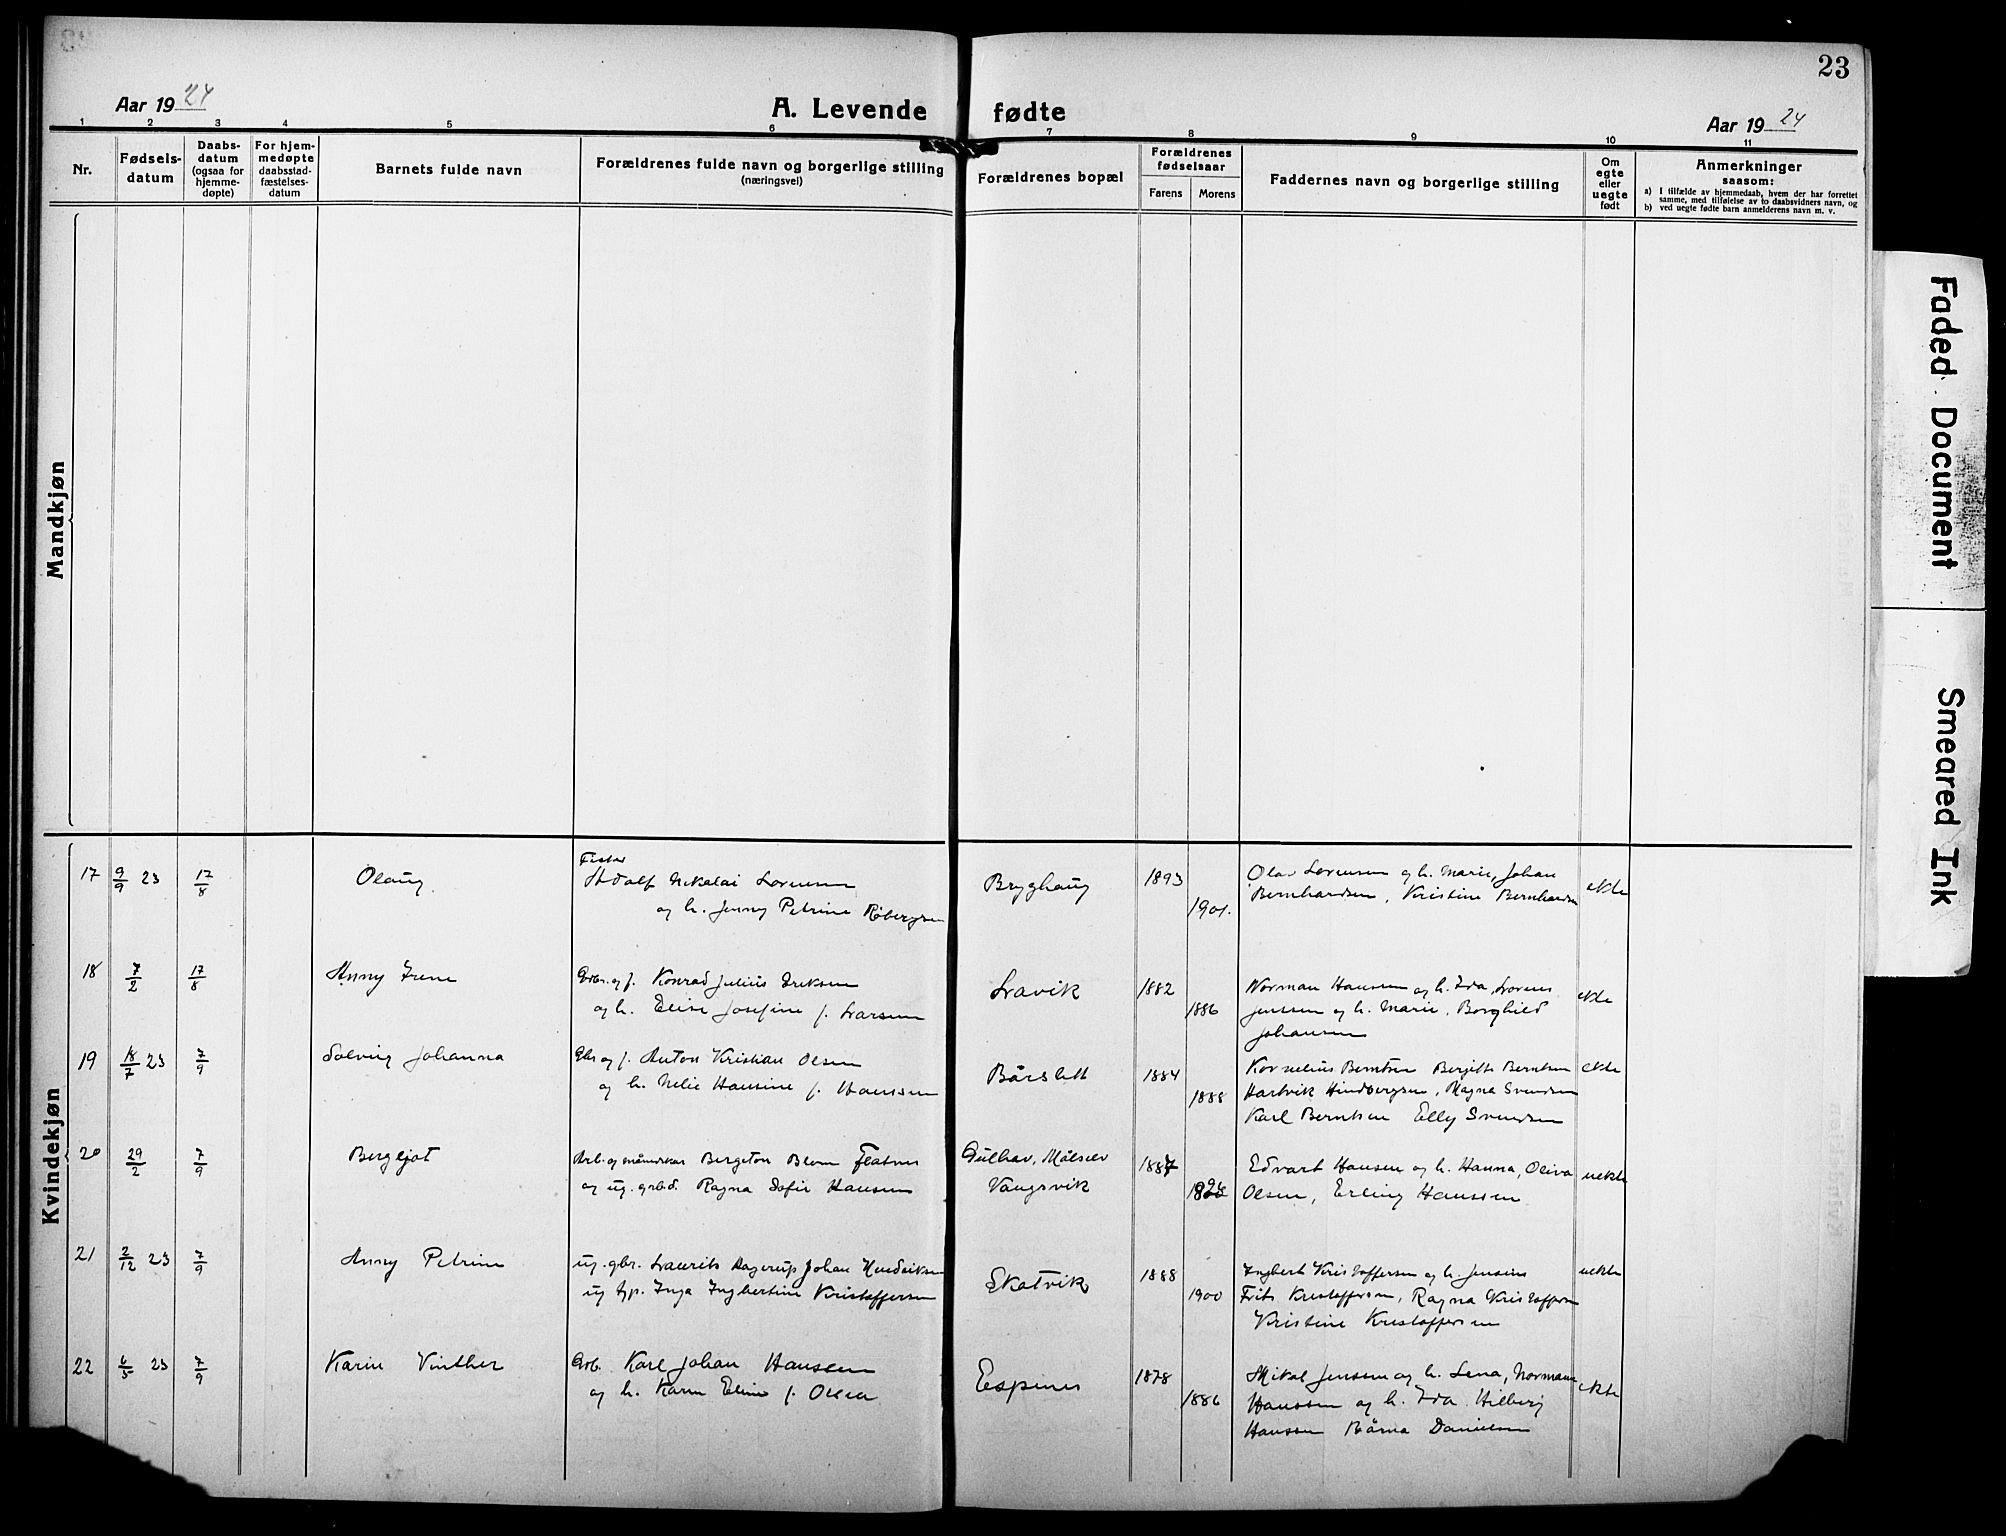 23
Aar 1924
A. Levende fødte
Aar 1924
1 2 3 4 5 6 7 8 9 10 11
Nr.
Fødsels-
datum
Daabs-
datum
(ogsaa for
hjemme-
døpte)
For hjem-
medøpte
daabsstad-
fæstelses-
datum
Barnets fulde navn
Forældrenes fulde navn og borgerlige stilling
(næringsvei)
Forældrenes bopæl
Forældrenes
fødselsaar
Farens Morens
Faddernes navn og borgerlige stilling
Om
egte
eller
uegte
født
Anmerkninger
saasom:
a) I tilfælde av hjemmedaab, hvem der har forrettet
samme, med tilføielse av to daabsvidners navn, og
b) ved uegte fødte barn anmelderens navn m. v.
Mandkjøn
Kvindekjøn
17 9/9 23 17/8 Olaug
Fisker
Adolf Nikolai Lorensen
og h. Jenny Petrine Robergsen
Bryghaug
1893
1901.
Olav Lorensen og h. Marie, Johan
Bernhardsen, Kristine Bernhardsen
ekte
18 7/2 17/8 Anny Irene
Gbr. og f. Konrad Julius Eriksen
og h. Elise Josefine f. Larsen
Lavik
1882
1886
Norman Hansen og h. Ida, Lorens
Jenssen og h. Marie, Borghild
Johansen
ekte
19 18/7 23 7/9 Solveig Johanna
Gbr og f. Anton Kristian Olsen
og h. Nelie Hansine f. Hanssen
Bårslett
1884
1888
Kornelius Berntsen Bergitte Berntsen
Hartvik Hindbergsen, Magna Svendsen
Karl Berntsen Elly Svendsen
ekte
20 29/2 7/9 Bergljot
Arb. og Bergeton Blom Flatnes
og ug. Ragna Sofie Hansen
Gulhav, Målselv
Vangsvik
1887
Edvart Hansen og h. Hanna, Oliva
Olsen, Erling Hanssen
uekte
21 2/12 23 7/9 Anny Petrine
ug. gbr. Laurits Hagerup Johan Hendriksen
ug tjp. Inga Ingbertine Kristoffersen
Skatvik
1888
1900
Ingbert Kristoffersen og h. Jensine
Frits Kristoffersen, Ragna Kristoffersen
Kristine Kristoffersen
uekte
22 6/5 23 7/9 Karin Vinther
Grb. Karl Johan Hanssen
og h. Karen Eline f. Olsen
Espenes
1878
1886
Mikal Jenssen og h. Lena, Normann
Hanssen og h. Ida Hilberg
Hansen Bårna Danielsen
ekte
Faded Document
Smeared Ink